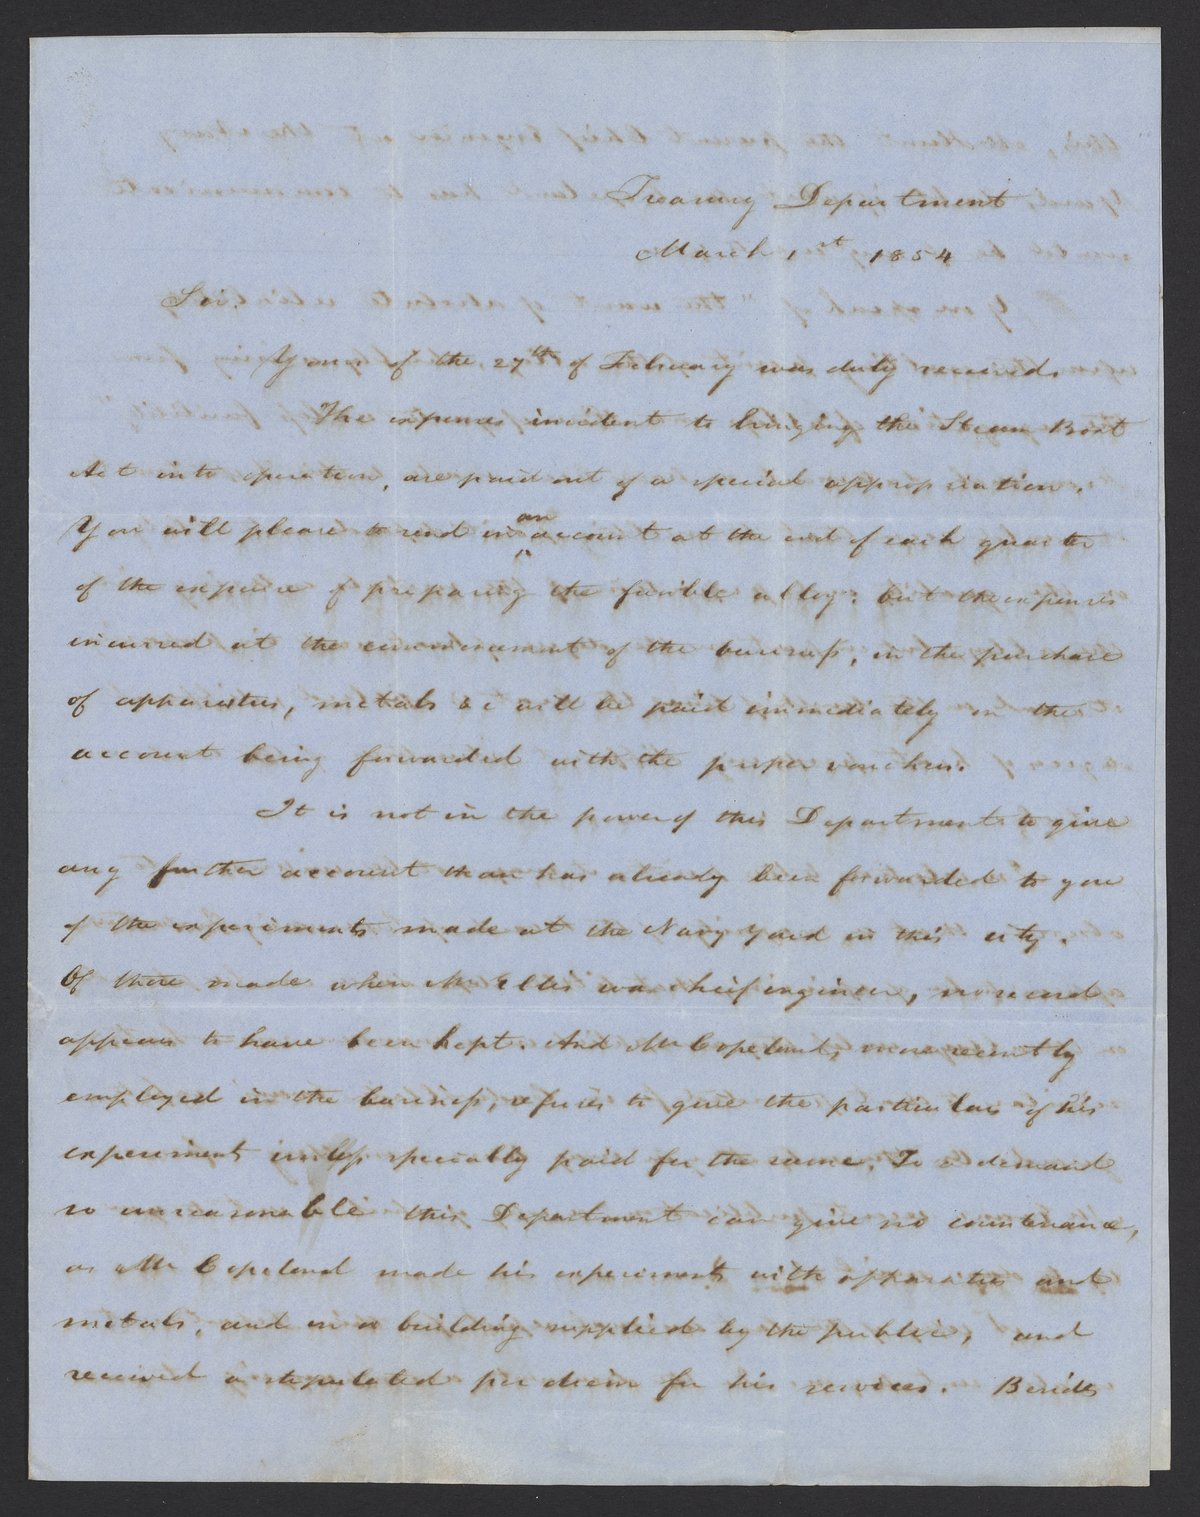 Treasury Department
March 1st 1854
Sir,
Yours of the 27th of February was duly received.
The expenses incident to bringing the Steam Boat
Act into operation, are paid out of a special appropriation.
You will please to send in an account at the end of each quarter
of the expense of preparing the fusible alloy: but the expenses
incurred at the commencement of the business, in the purchase
of apparatus, metals &c will be paid immediately on the
account being forwarded with the proper vouchers.
It is not in the power of this Department to give
any further account than has already been forwarded to you
of the experiments made at the Navy Yard in this city.
Of those made when Mr Ellis was chief engineer, no record
appears to have been kept. And Mr Copeland, more recently
employed in the business, refuses to give the particulars of his
experiments unless specially paid for the same. To a demand
so unreasonable this Department can give no countenance,
as Mr Copeland made his experiments with apparatus and
metals, and in a building supplied by the public, and
received a stipulated per diem for his services. Besides